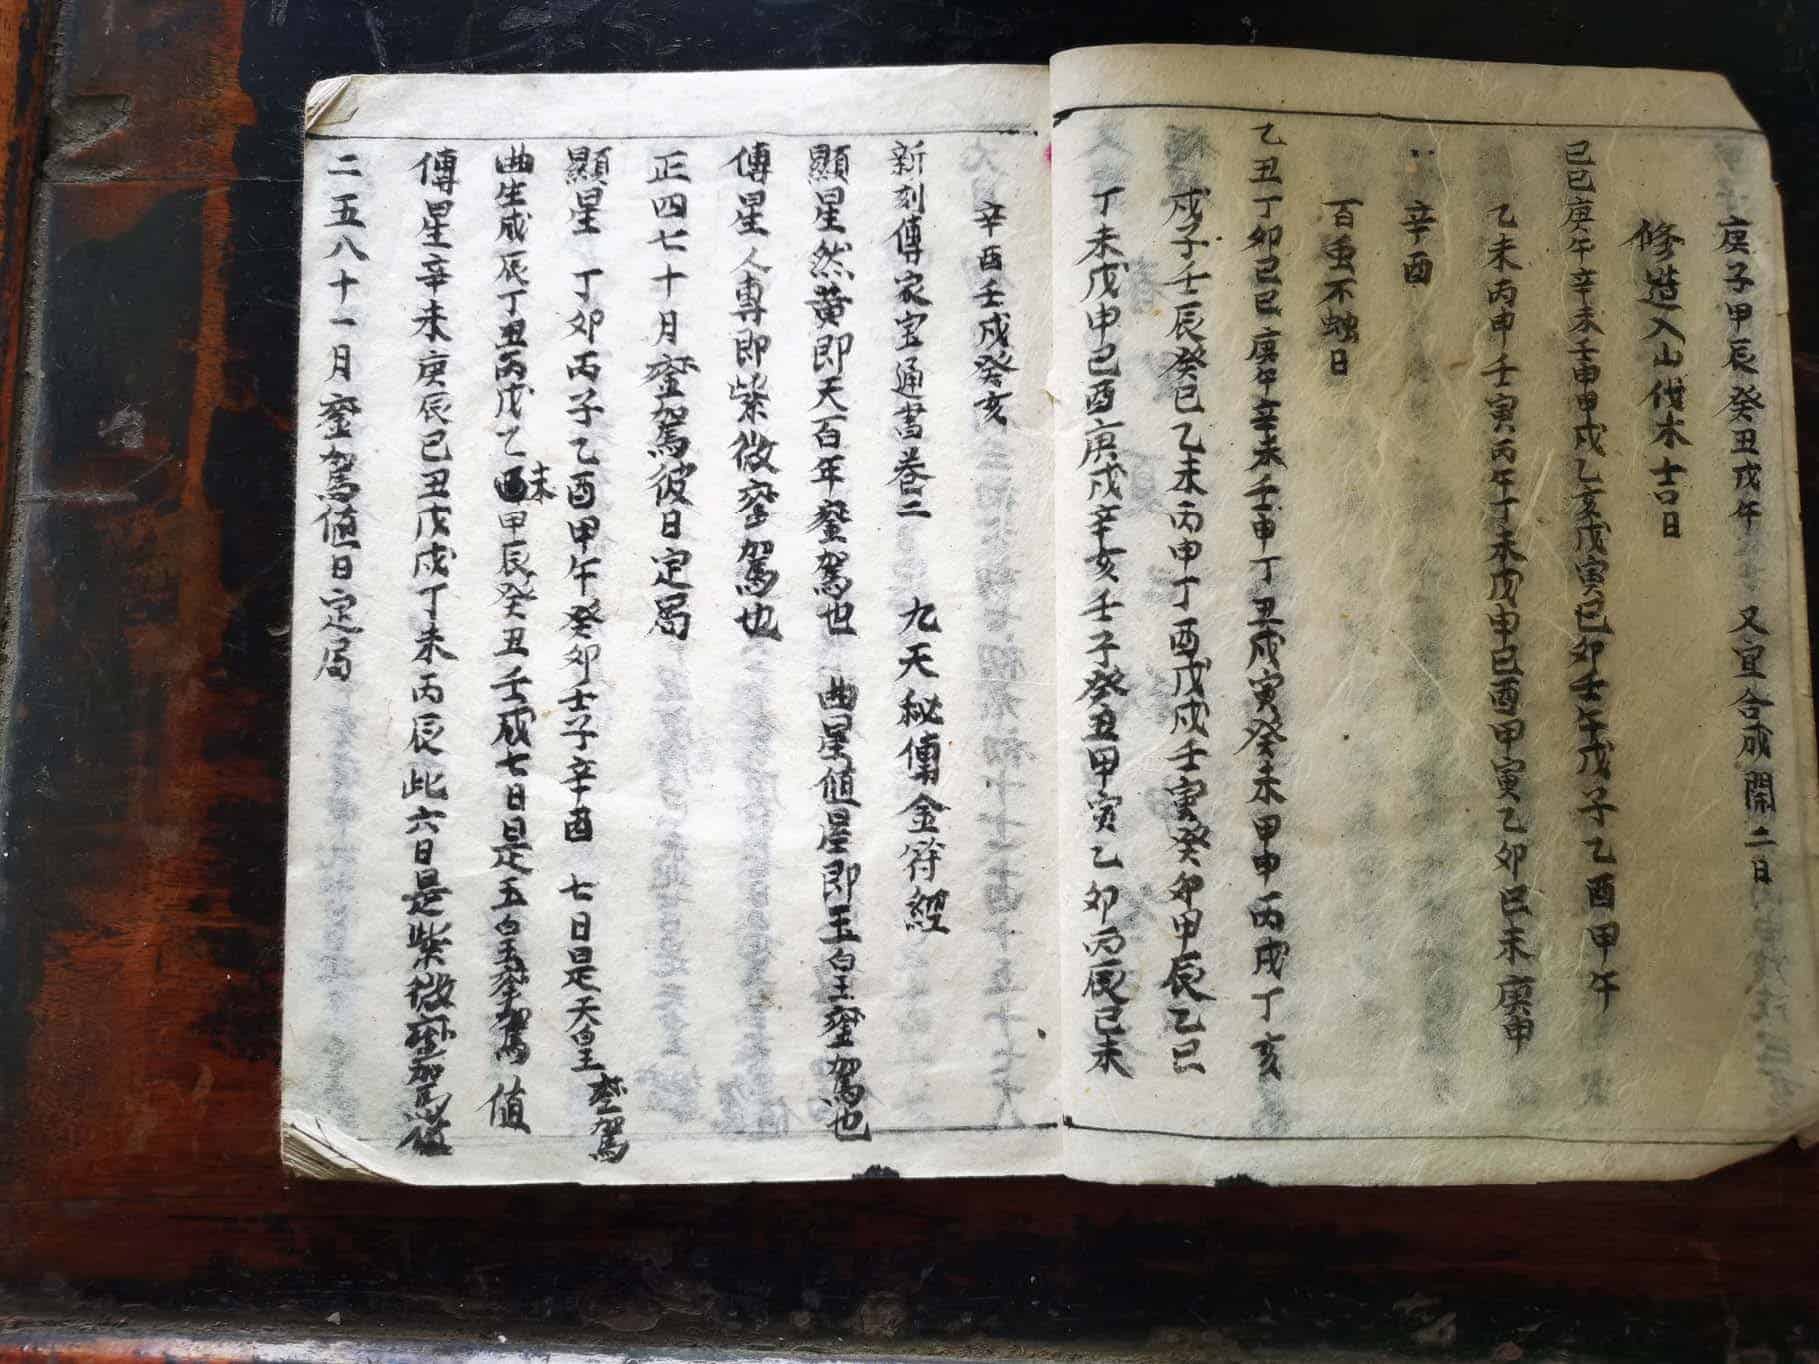 庚子甲辰癸丑戊午 又宜合成開二日
修造入山伐木吉日
己巳庚午辛未壬申甲戌乙亥戊寅己卯壬午戊子乙酉甲午
乙未丙申壬寅丙午丁未戊申己酉甲寅乙卯巳未庚申
辛酉
百虫不蛀日
乙丑丁卯己巳庚午辛未壬申丁丑戊寅癸未甲申丙戌丁亥
戊子壬辰癸巳乙未丙申丁酉戊戌壬寅癸卯甲辰乙巳
丁未戊申己酉庚戌辛亥壬子癸丑甲寅乙卯丙辰己未
辛酉壬戌癸亥
新刻傳家宝通書卷二 九天秘傳金符經
顯星然黄即天百年鑾駕也 曲星值星即玉白王鑾駕也
傅星人專即紫微鑾駕也
正四七十月鑾駕彼日定局
顯星 丁卯丙子乙酉甲午癸卯壬子辛酉 七日是天皇鑾駕
曲生戊辰丁丑丙戌乙未甲辰癸丑壬戌七日是玉白王鑾駕 值
傅星辛未庚辰己丑戊戌丁未丙辰此六日是紫微鑾駕值
二五八十一月鑾駕值日定局